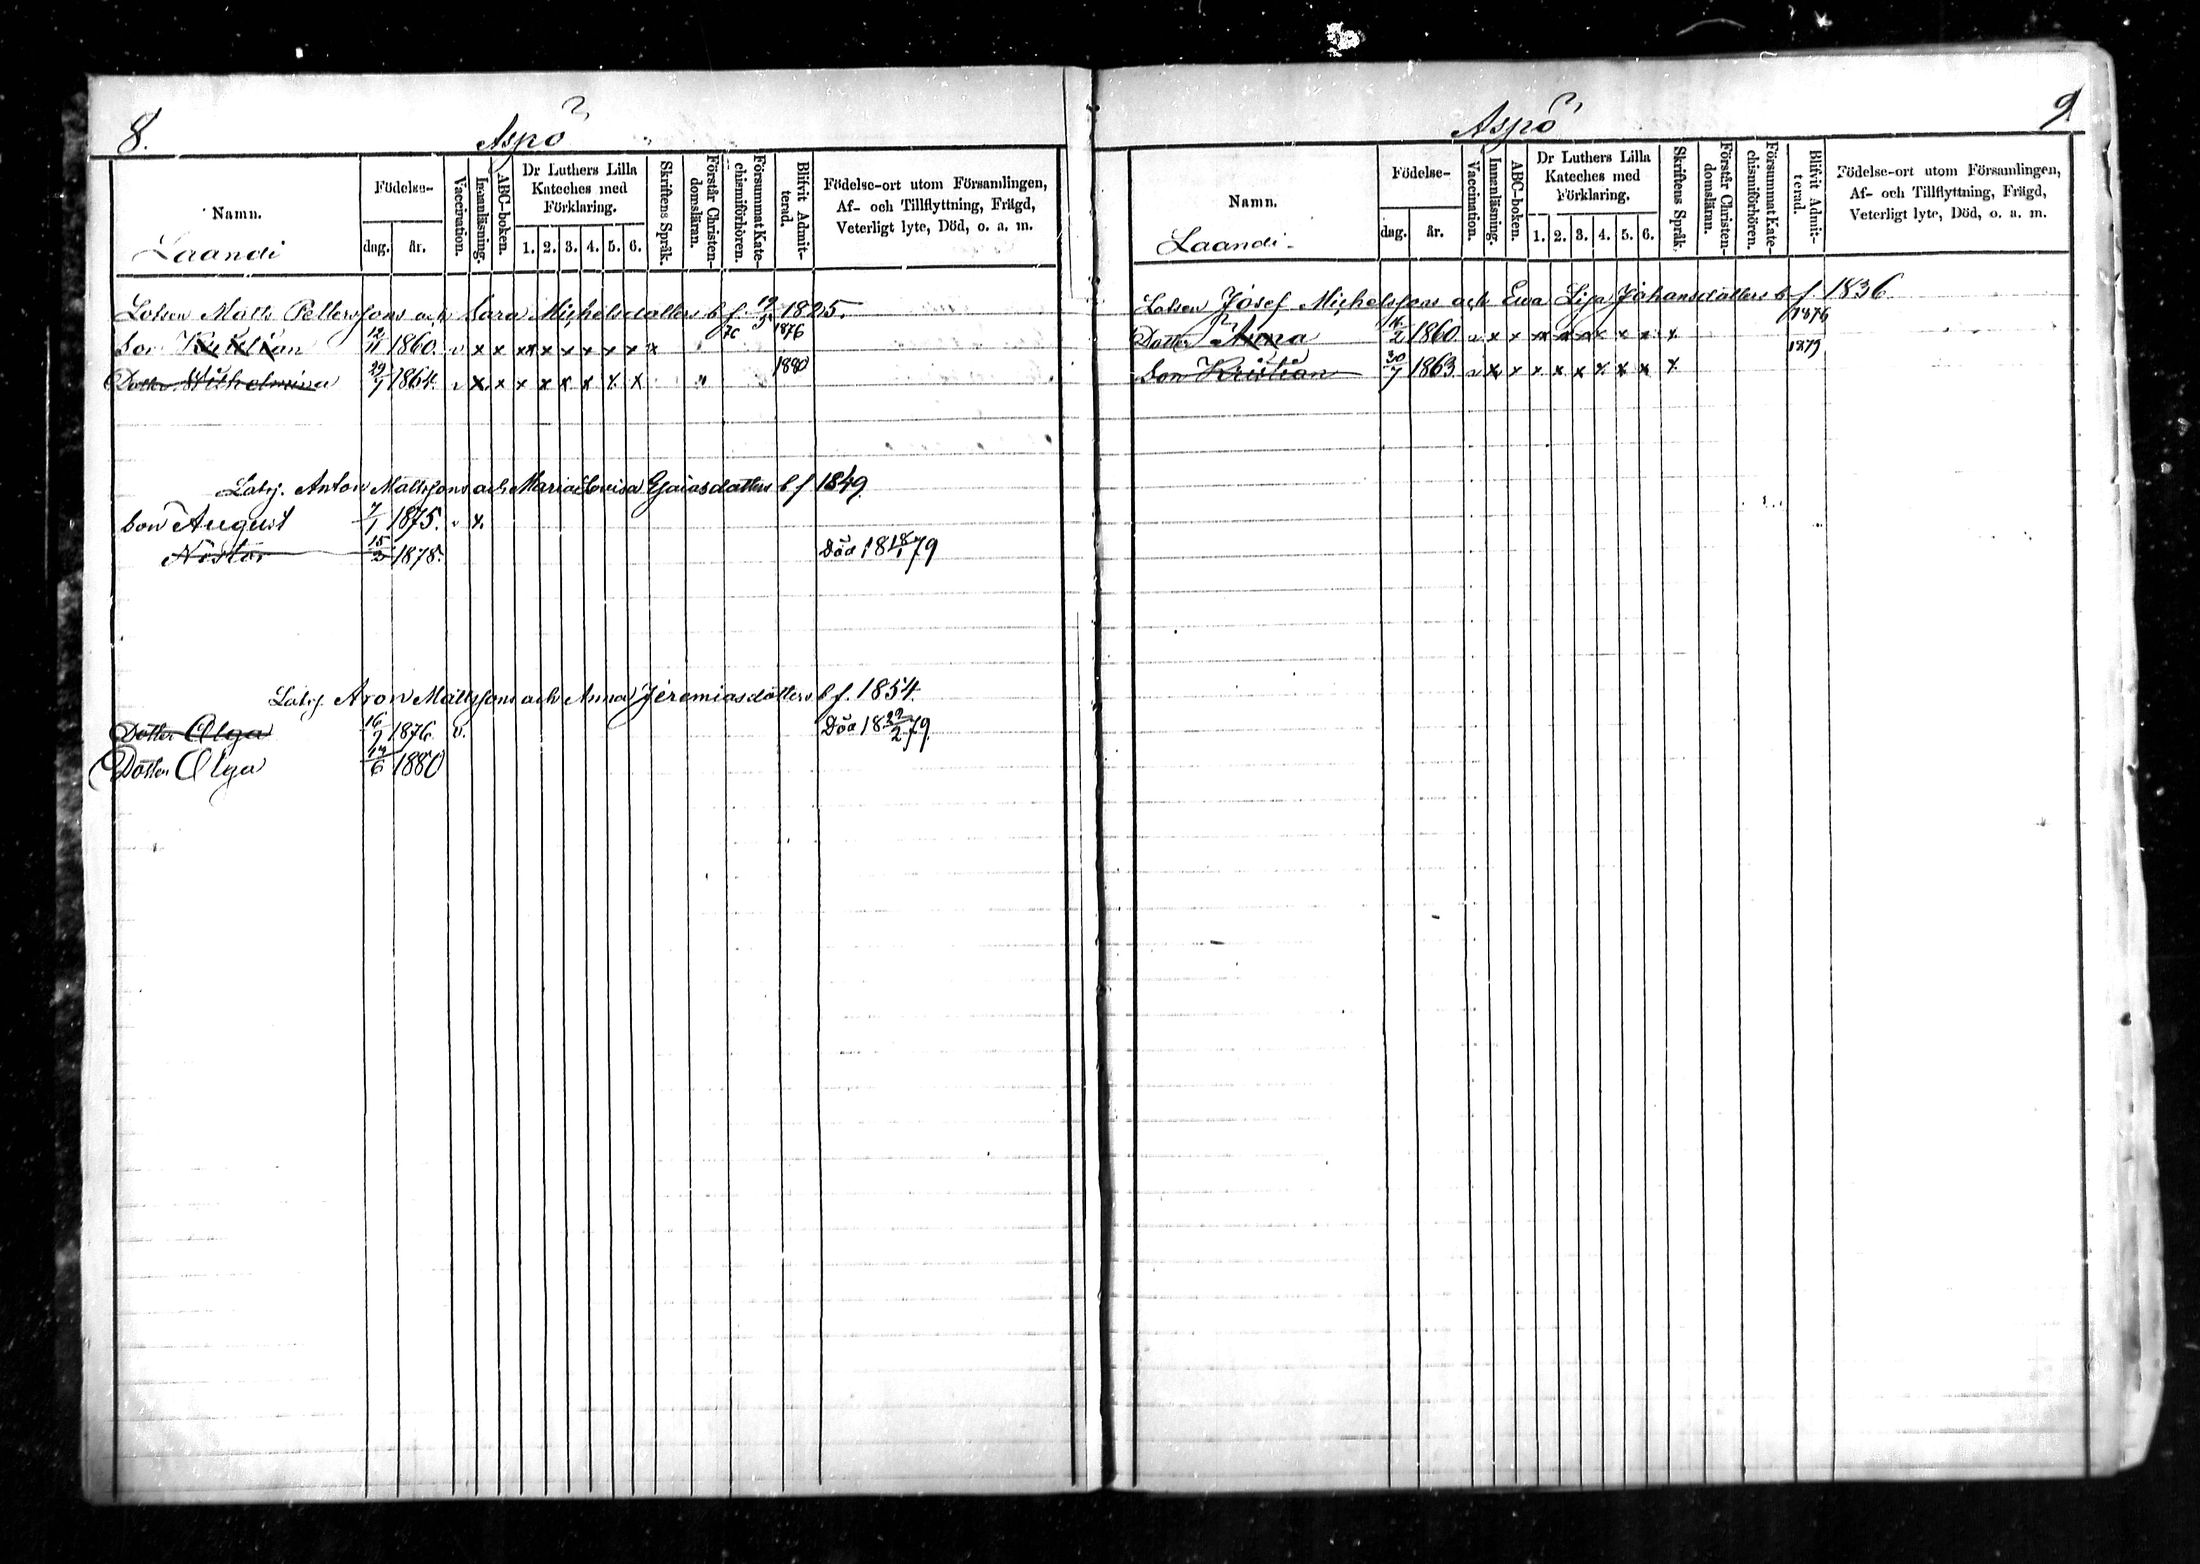 8.
Aspö
Namn.
Laandi
Födelse-
dag.
år.
Vaccination.
Innanläsning.
ABC-boken.
Dr Luthers Lilla
Kateches med
Förklaring.
1. 2. 3. 4. 5. 6.
Skriftens Språk.
Förstår Christen-
domsläran.
Försummat Kate-
chismiförhören.
Blifvit Admit-
terad.
Födelse-ort utom Församlingen,
Af- och Tillflyttning, Frägd,
Veterligt lyte, Död, o. a. m.
Lotsen Matts Pettersfons och Sara Michelsdotters b f. 1825.
Son Kristian 12/11 1860. v x x x x x x x x x 1876
Dotter Wilhelmina 29/7 1864. v x x x x x x x x " 1880
Lotsj. Anton Mattsfons och Maria Lovisa Gaiasdotters b f 1849
Son August 7/1 1875. v x.
Nestor 15/3 1878. Död 18 18/1 79
Lotsj. Aron Mattsfons och Anna Jeremiasdotters b f. 1854.
Dotter Olga 16/7 1876 v. Död 18 22/2 79.
Dotter Olga 17/6 1880
9
Aspö
Namn.
Laandi
Födelse-
dag.
år.
Vaccination.
Innanläsning.
ABC-boken.
Dr Luthers Lilla
Kateches med
Förklaring.
1. 2. 3. 4. 5. 6.
Skriftens Språk.
Förstår Christen-
domsläran.
Försummat Kate-
chismiförhören.
Blifvit Admit-
terad.
Födelse-ort utom Församlingen,
Af- och Tillflyttning, Frägd,
Veterligt lyte, Död, o. a. m.
Lotsen Josef Michelsfons och Ewa Lisa Johansdotters b. f. 1836
Dotter Anna 16/2 1860. v x x x x x x x x x 1876
Son Kristian 30/7 1863 v x x x x x x x x x 1879